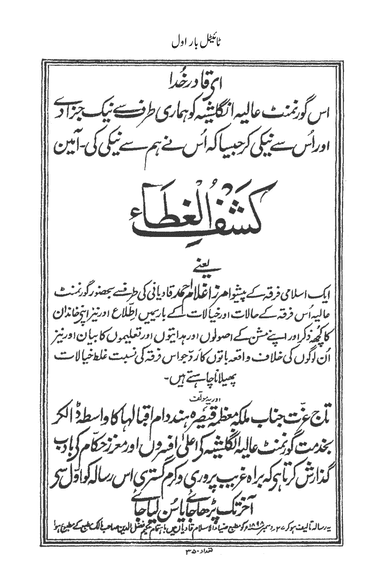 ٹائیٹل بار اول
اے قادر خدا
اس گورنمنٹ عالیہ انگلشیہ کو ہماری طرف سے نیک جزا دے
اور اس سے نیکی کر جیسا کہ اس نے ہم سے نیکی کی۔ آمین
کَشفُ الغِطَاء
یعنے
ایک اسلامی فرقہ کے پیشوا مرزا غلام احمد قادیانی کی طرف سے بحضور گورنمنٹ
عالیہ اُس فرقہ کے حالات اور خیالات کے بارے میں اطلاع اور نیز اپنے خاندان
کا کچھ ذکر اور اپنے مشن کے اصولوں اور ہدایتوں اور تعلیموں کا بیان اور نیز
اُن لوگوں کی خلاف واقعہ باتوں کا ردّ جو اس فرقہ کی نسبت غلط خیالات
پھیلانا چاہتے ہیں۔
اور یہ مؤلف
تاج عزت جناب ملکہ معظمہ قیصرہ ہند دام اقبالہا کا واسطہ ڈال کر
بخدمت گورنمنٹ عالیہ انگلشیہ کے اعلیٰ افسروں اور معزز حکّام کے بادب
گذارش کرتا ہے کہ براہ غریب پروری و کرم گستری اس رسالہ کو اوّل سے
آخر تک پڑھا جائے یا سُن لیا جائے
یہ رسالہ تالیف ہو کر ۲۷ دسمبر ۱۸۹۸ء کو مطبع ضیاء الاسلام قادیان میں باہتمام حکیم فضل الدین صاحب مالک مطبع کے مطبع ہوا
تعداد ۳۵۰